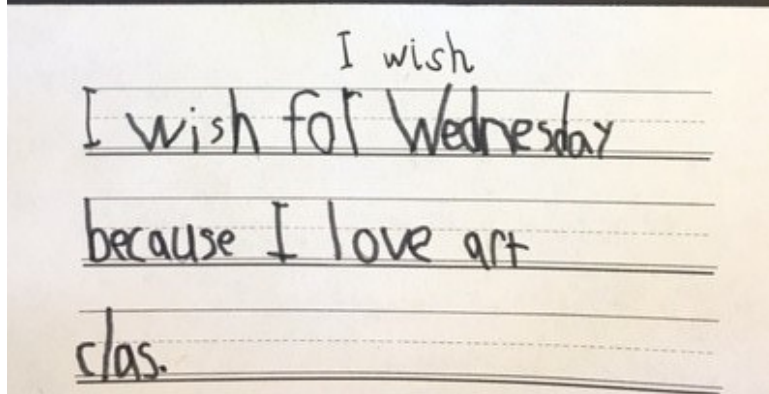 I wish
I wish for Wednesday
because I love art
clas.